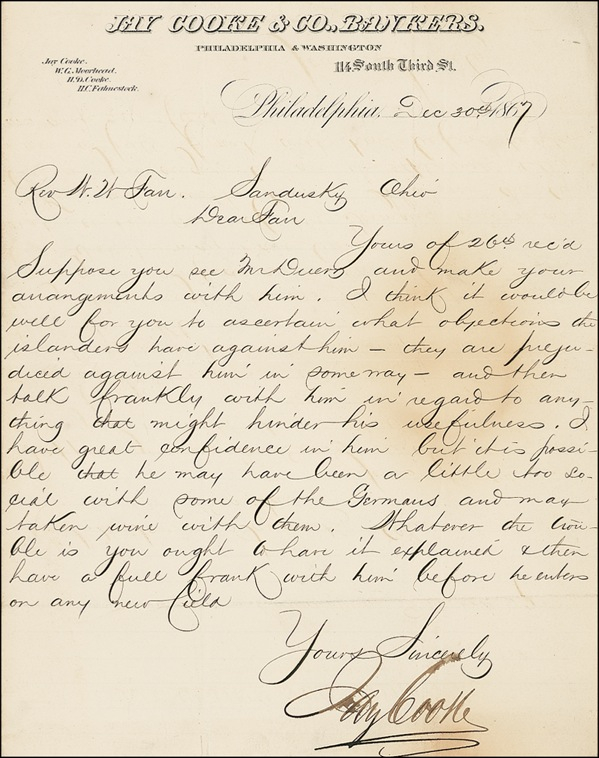 JAY COOKE & CO., BANKERS.
PHILADELPHIA & WASHINGTON
114 South Third St.
Jay Cooke.
W.G. Moorhead.
H.D. Cooke.
H.C. Fahnestock.
Philadelphia, Dec 30th 1867
Rev W. W Farr. Sandusky Ohio
Dear Farr
Yours of 26th rec'd
Suppose you see Mr Duerr and make your
arrangements with him. I think it would be
well for you to ascertain what objections the
islanders have against him — they are preju-
diced against him in some way — and then
talk frankly with him in regard to any-
thing that might hinder his usefulness. I
have great confidence in him but it is possi-
ble that he may have been a little too so-
cial with some of the Germans and may
taken wine with them. Whatever the trou-
ble is you ought to have it explained & then
have a full frank with him before he enters
on any new field
Yours Sincerely
Jay Cooke